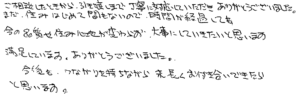 ご相談したときから、引き渡しまで丁寧に対応していただきありがとうございました。
まだ、住みはじめて間もないので、時間が経過しても
今の品質 住み心地が変わらず 大事にしていきたいと思います
満足しています。ありがとうございました。
今後も、つながりを持ちながら 末長くお付き合いできたら
と思います。